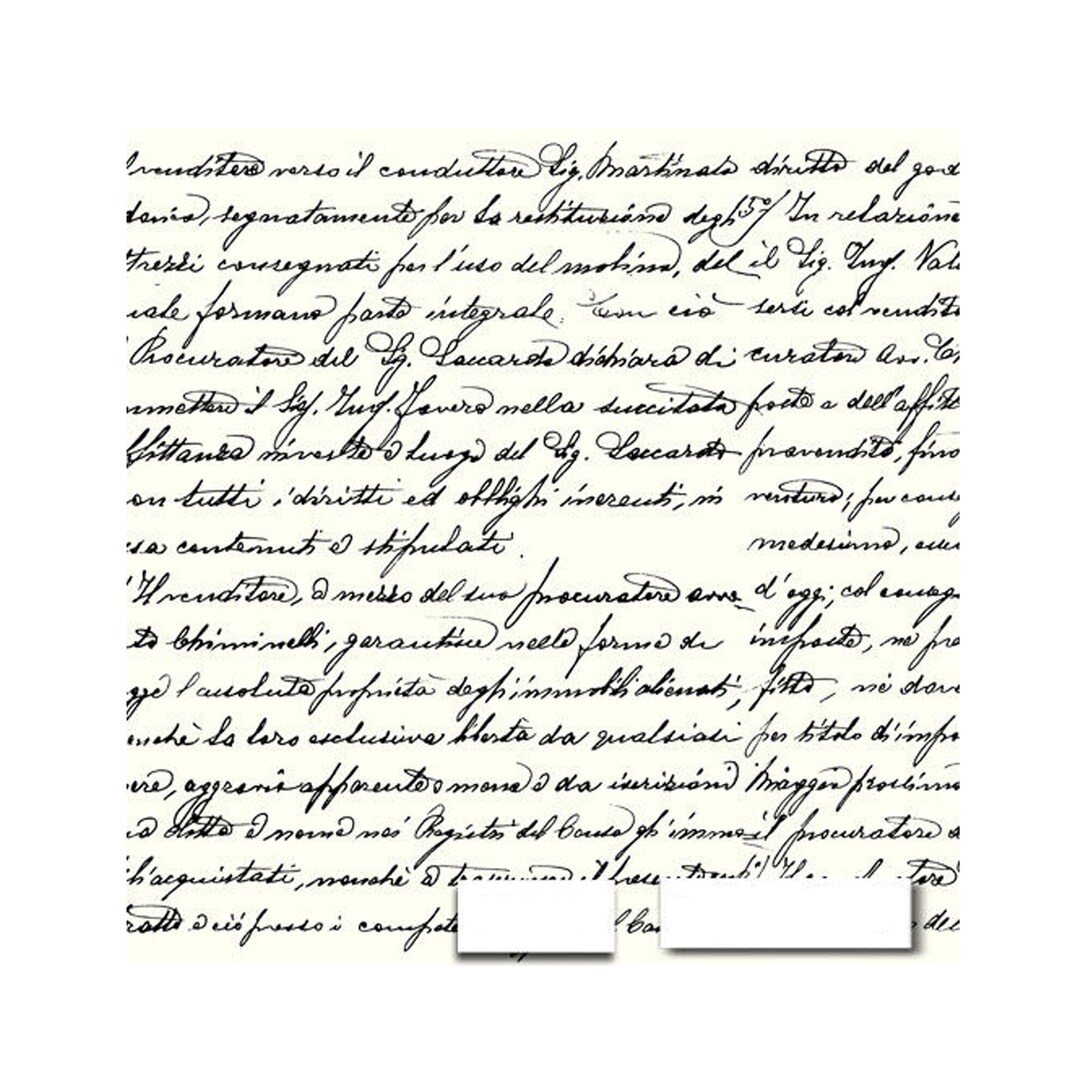 venditore verso il conduttore Sig. Martinato diretto del god
segnatamente per la restituzione degli 5°/ In relazione
trezzi consegnati per l'uso del molino, del il Sig. Ing. Val
iale formano parte integrale. Con ciò sersi col vendito
Procuratore del Sig. Saccardo dichiara di curatore Avv. C
mettere il Sig. Ing. Favero nella succitata poste a dell'affitt
ffittanza investito a luogo del Sig. Saccardo provvendita, fino
on tutti i diritti ed obblighi inerenti, in venturo; per cons
sa contenuti e stipulati. medesimo,
Il venditore, a mezzo del suo procuratore avv. d'oggi; col conseg
to Chiminelli, garantisce nella forma di imposte, ne pre
gge l'assoluta proprietà degli immobili alienati, fitto, nè dov
nchè la loro esclusiva libertà da qualsiasi per titolo d'impo
ere, aggravio apparente o meno e da iscrizioni Maggio prossimo
ditta e nome nei Registri del Censo gl'immo il procuratore
li acquistati, nonchè a il
e ciò presso i compete